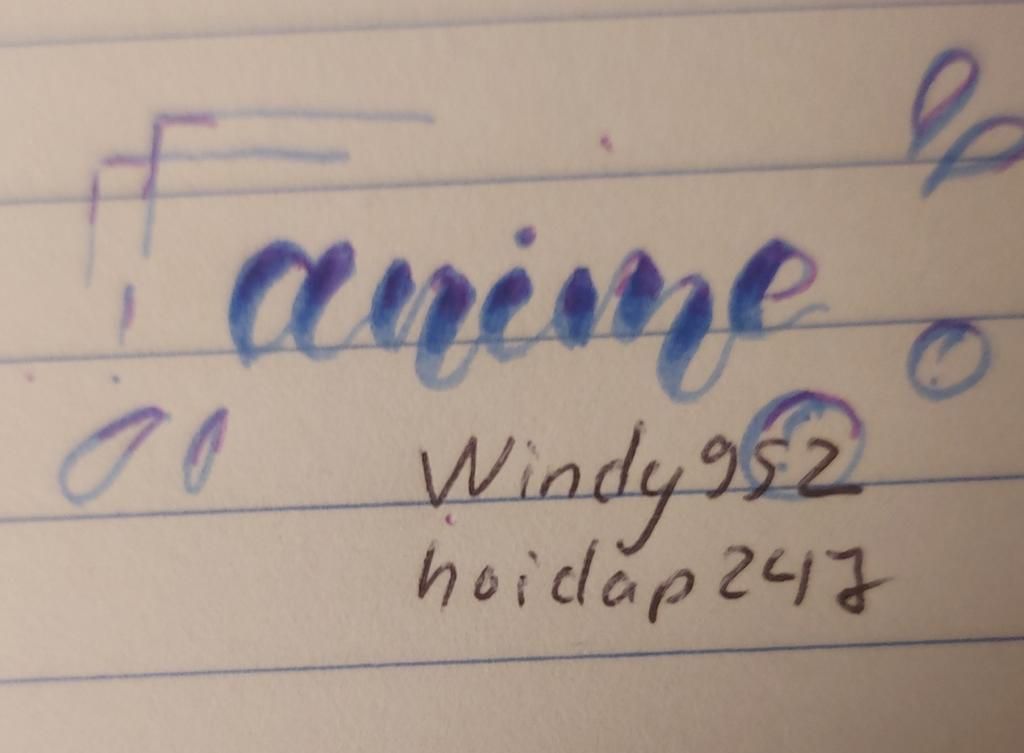 anime
Windy952
hoidap247